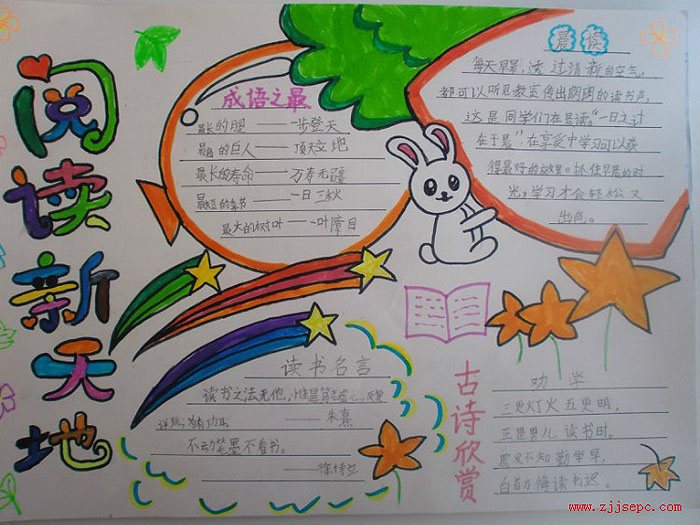 阅读新天地
成语之最
最长的腿——一步登天
最高的巨人——顶天立地
最长的寿命——万寿无疆
最短的季节——一日三秋
最大的树叶——一叶障目
晨读
每天早晨，透过清新的空气，
都可以听见教室传出朗朗的读书声，
这是同学们在晨读。“一日之计
在于晨”在享受中学习可以获
得最好的效果。抓住早晨的时
光，学习才会轻松又
出色。
读书名言
读书之法无他，惟是笃志虚心，反复
详玩，为有功耳。
朱熹
不动笔墨不看书。
——徐特立
古诗欣赏
劝学
三更灯火五更明，
正是男儿读书时。
黑发不知勤学早，
白首方悔读书迟。
www.zjjsepc.com